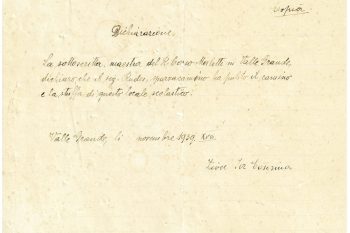 Copia
Dichiarazione.
La sottoscritta, maestra del R. Corso Merletti in Valle Grande,
dichiara che il sig. Rudes, spazzacamino ha pulito il camino
e la stuffa di questo locale scolastico.
Valle Grande, li novembre 1939. XVII.